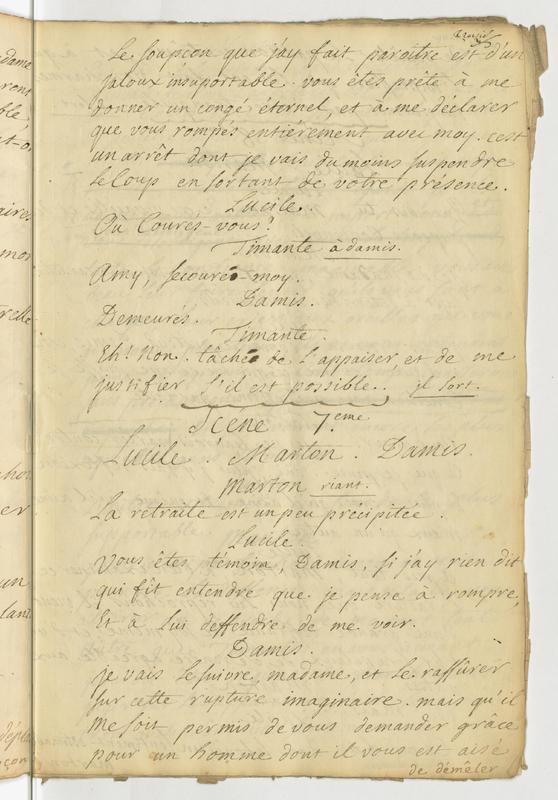 Le soupçon que j'ay fait paroitre est d'un
jaloux insuportable. vous êtes prête à me
donner un congé éternel, et à me déclarer
que vous rompés entiérement avec moy. c'est
un arrêt dont je vais du moins suspendre
le Coup en sortant de votre présence.
Lucile.
Où Courés-vous?
Timante à damis.
Amy, secourés-moy.
Damis.
Demeurés.
Timante.
Eh! Non. tâchés de l'appaiser, et de me
justifier s'il est possible. il sort.
Scene 7.eme
Lucile. Marton. Damis.
Marton riant.
La retraite est un peu précipitée.
Lucile.
Vous êtes témoin, Damis, si j'ay rien dit
qui fit entendre que je pense à rompre,
Et à lui deffendre de me voir.
Damis.
je vais le suivre, madame, et le rassûrer
sur cette rupture imaginaire. mais qu'il
me soit permis de vous demander grâce
pour un homme dont il vous est aisé
de démêler